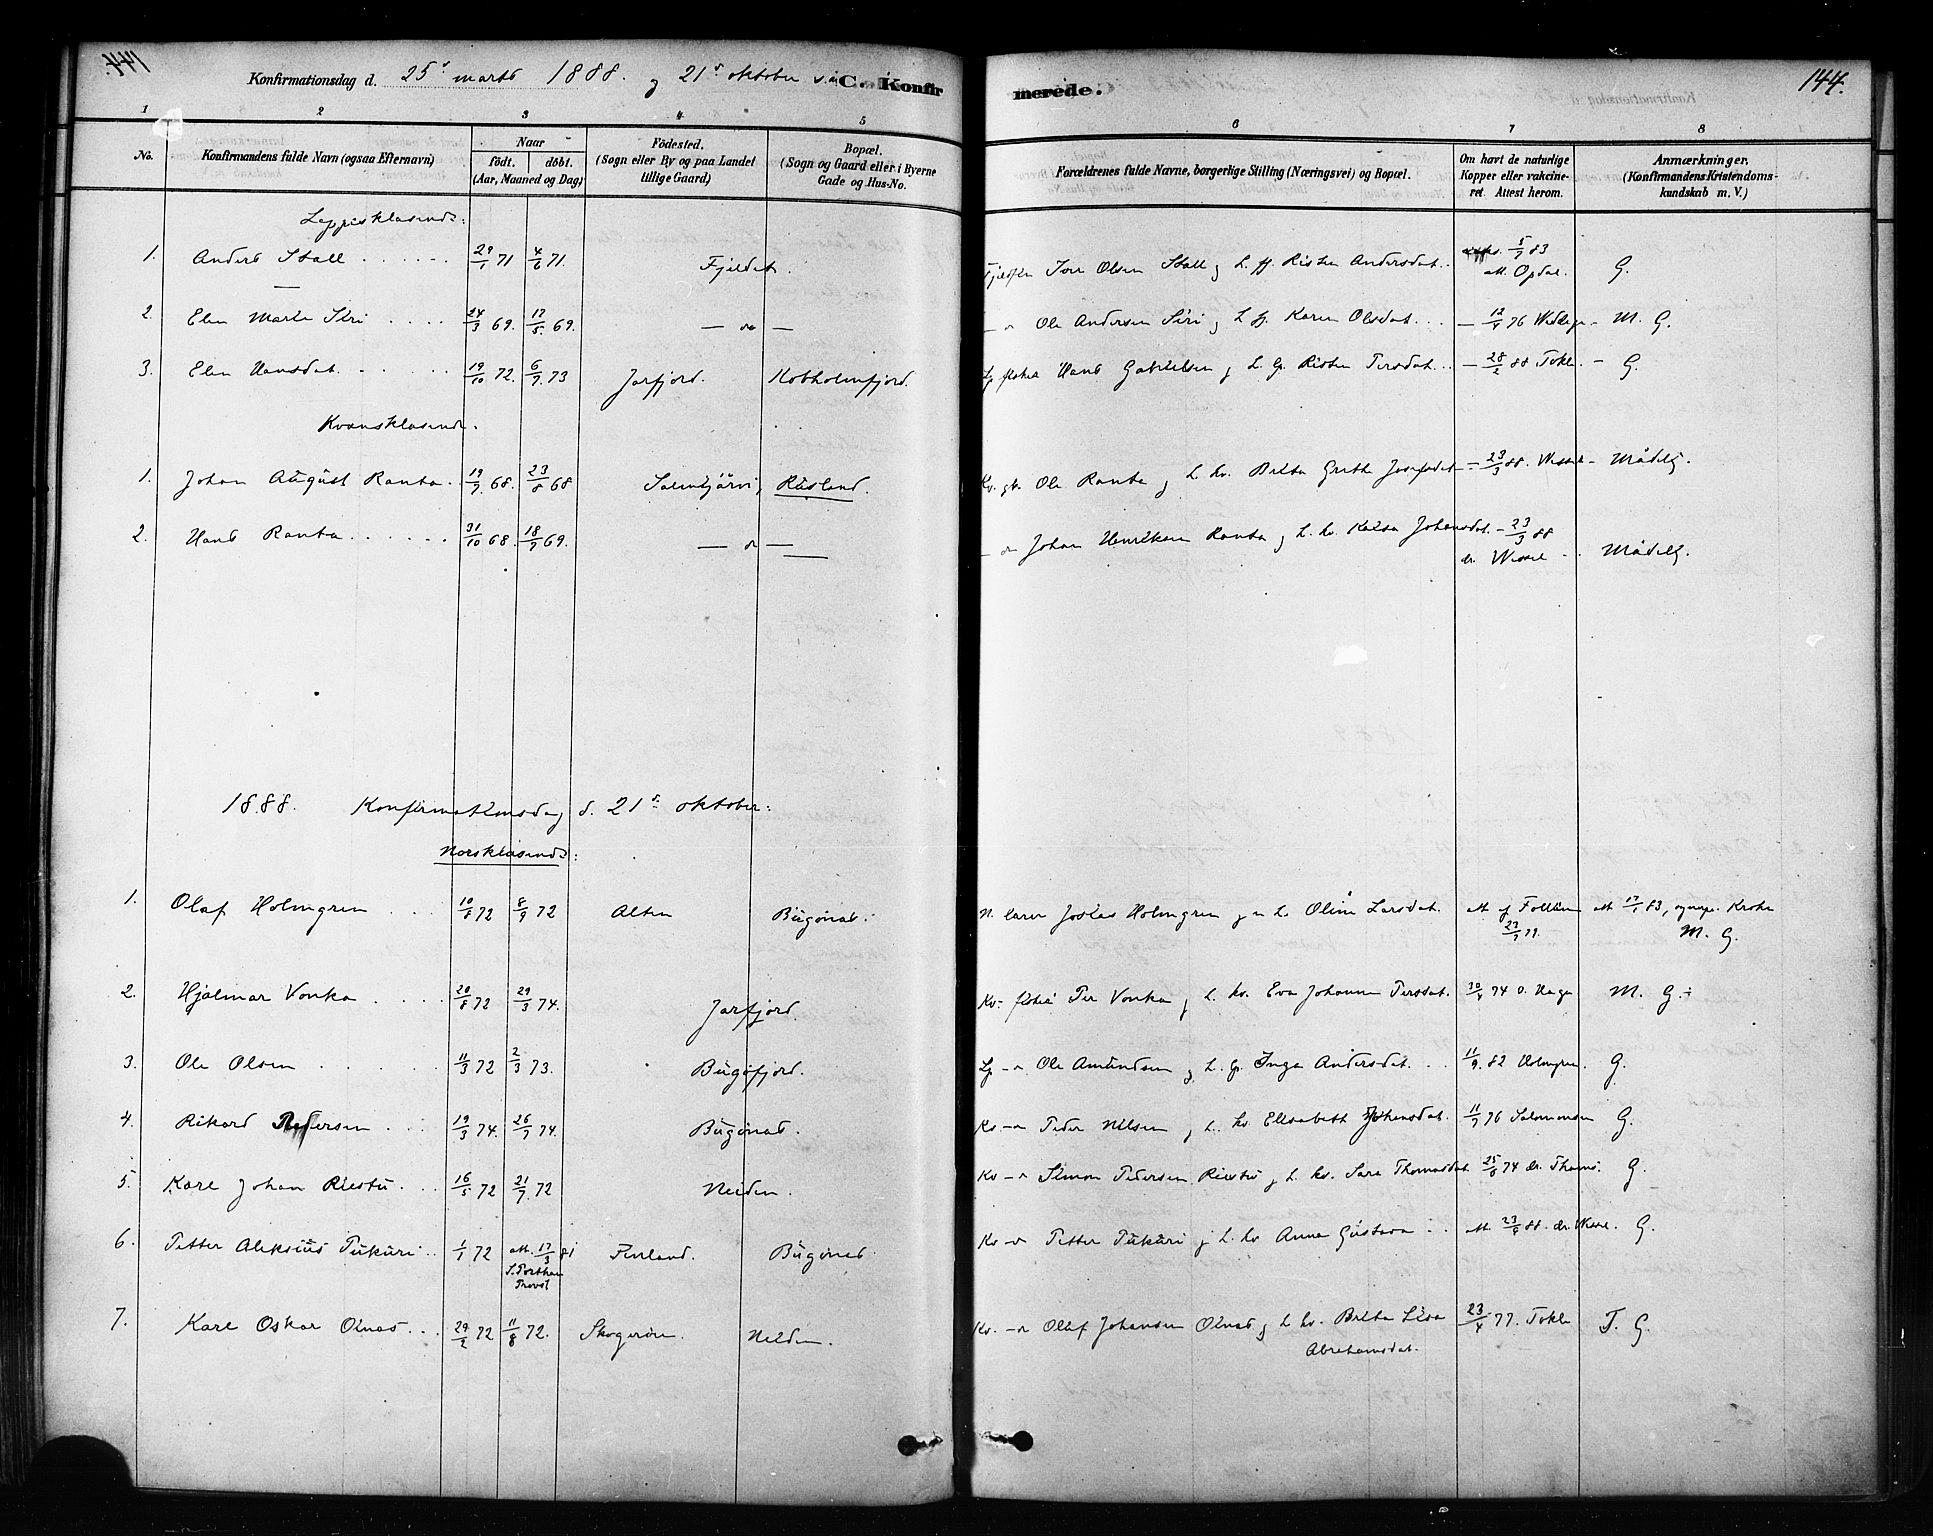 144.
Konfirmationsdag d. 25d marts 1888. og 21d oktober C. Konfirmerede. 144.
1 2 3 4 5 6 7 8
No. Konfirmandens fulde Navn (ogsaa Efternavn) Naar födt. döbt. (Aar, Maaned og Dag) Födested. (Sogn eller By og paa Landet tillige Gaard) Bopæl. (Sogn og Gaard eller i Byerne Gade og Hus-No. Forældrenes fulde Navne, borgerlige Stilling (Næringsvei) og Bopæl. Om havt de naturlige Kopper eller vakcineret. Attest herom. Anmærkninger. (Konfirmandens Kristendomskundskab m. V.)
Lappisklæsende:
1. Anders Stall 29/1 71 4/6 71. Fjeldet. Fjeldfin Ole Olsen Stall og h. fj. Risten Andersdat. 5/7 83 att. Opdal. G.
2. Elen Marie Siri 24/3 69. 17/5 69. — " — — " Ole Andersen Siri og h. fj. Karen Olsdat. — 12/9 76 M. G.
3. Elen Hansdat. 19/10 72. 6/7 73 Jarfjord. Kobholmfjord. Lp fisker Hans Gabrielsen og h. lp. Risten Persdat. — 28/2 88 Tokle — G.
Kvænsklæsende.
1. Johan August Ranta. 19/7 68. 23/8 68 Salmijärvi, Rusland. Kv. gb. Ole Ranta og h. kv. Brita Grethe Josefsdat — 23/3 88. Wessel — Mådelig.
2. Hans Ranta 31/10 68. 18/9 69. — " — — " Johan Henriksen Ranta og h. kv. Kaisa Johansdat. — 23/3 88 dr. Wessel — Mådelig.
1888. Konfirmationsdag d. 21d oktober:
Norsklæsende:
1. Olaf Holmgren 10/8 72 8/9 72 Alten Bugönæs. N. lærer Josias Holmgren og n. h. Oline Larsdat. att. af Follum 23/7 79. att 17/1 83, Kroken M. G.
2. Hjalmar Vonka 20/8 72 29/3 74. Jarfjord. Kv. fisker Per Vonka og h. kv. Eva Johanne Persdat. 30/4 74 O. Haga M. G. +
3. Ole Olsen 11/3 72 2/3 73. Bugöfjord. Lp — " Ole Amundsen og h. lp. Inga Andersdat. 11/9. 82 Holmgren. G.
4. Rikard Pedersen 19/3 74. 26/7 74. Bugönæs. Kv — " Peder Nilsen og h. kv. Elisabeth Johansdat. 11/7 76 Salomonsen G.
5. Karl Johan Riestu. 16/5 72 21/7 72 Neiden. Kv — " Simon Pedersen Riestu og h. kv. Sara Thomasdat. 25/8 74 dr. Thoms. G.
6. Petter Aleksius Pukuri 1/1 72 att. 17/3 81 Finland. Bugönæs. Kv — " Petter Pukuri og h. kv Anna Gustava att. 23/9 88. dr. Wessel. G.
S. Porthan
Provst
7. Karl Oskar Oinas 29/2 72 11/8 72. Skogeröen. Neiden. Kv. — " Ollif Johansen Oinas og h kv. Brita Lisa 23/4 77. Tokle T. G.
Abrahamsdat.